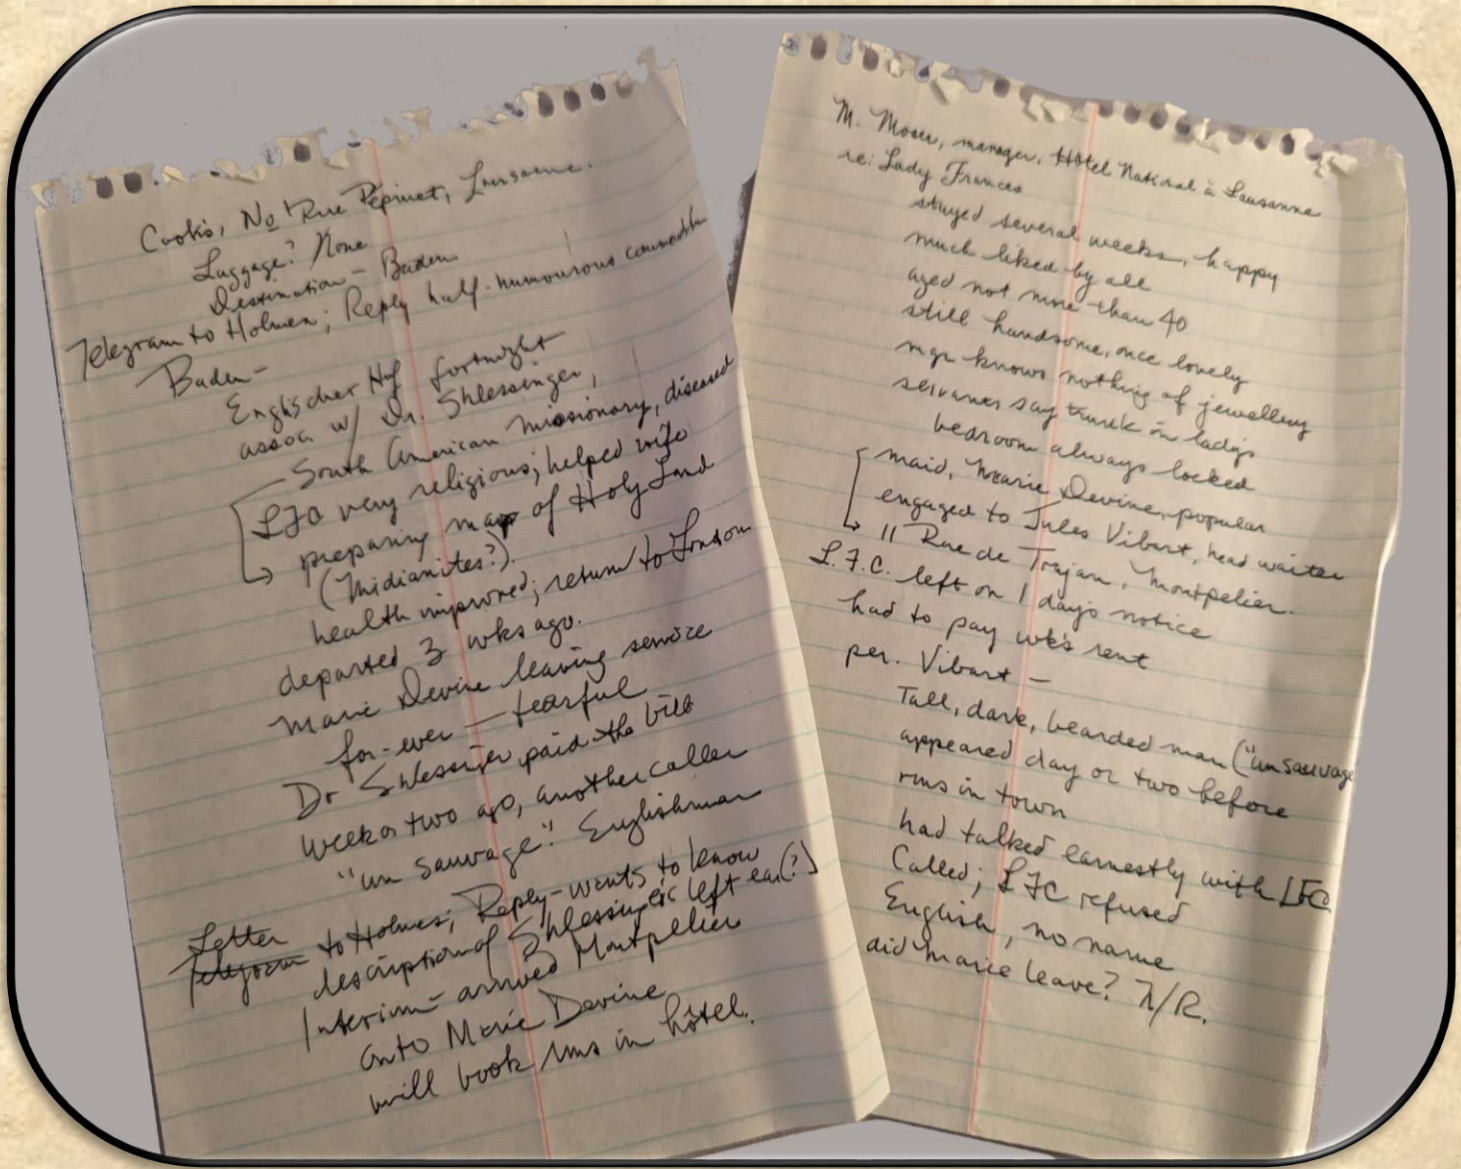 Cook's, No Rue Pépinet, Lausanne.
Luggage? None
Destination - Baden
Telegram to Holmes; Reply half-humourous commendation
Baden -
Englischer Hof fortnight
assoc w/ Dr. Shlessinger,
South American missionary, diseased
LFC very religious; helped wife
preparing map of Holy Land
(Midianites?).
health improved; return to London
departed 3 wks ago.
Marie Devine leaving service
for-ever — tearful
Dr Shlessinger paid the bill
Week or two ago, another caller
"un sauvage". Englishman
Letter
Telegram to Holmes; Reply - wants to know
description of Shlessinger's left ear (?)
Interim - arrived Montpellier
onto Marie Devine
will book rms in hôtel.
M. Moser, manager, Hôtel National à Lausanne
re: Lady Frances
stayed several weeks, happy
much liked by all
aged not more than 40
still handsome, once lovely
mgr knows nothing of jewellery
servants say trunk in lady's
bedroom always locked
maid, Marie Devine, popular
engaged to Jules Vibart, head waiter
11 Rue de Trajan, Montpelier.
L.F.C. left on 1 day's notice
had to pay wk's rent
per. Vibart -
Tall, dark, bearded man ("un sauvage
appeared day or two before
rms in town
had talked earnestly with LFC
Called; LFC refused
English, no name
did Marie leave? N/R.